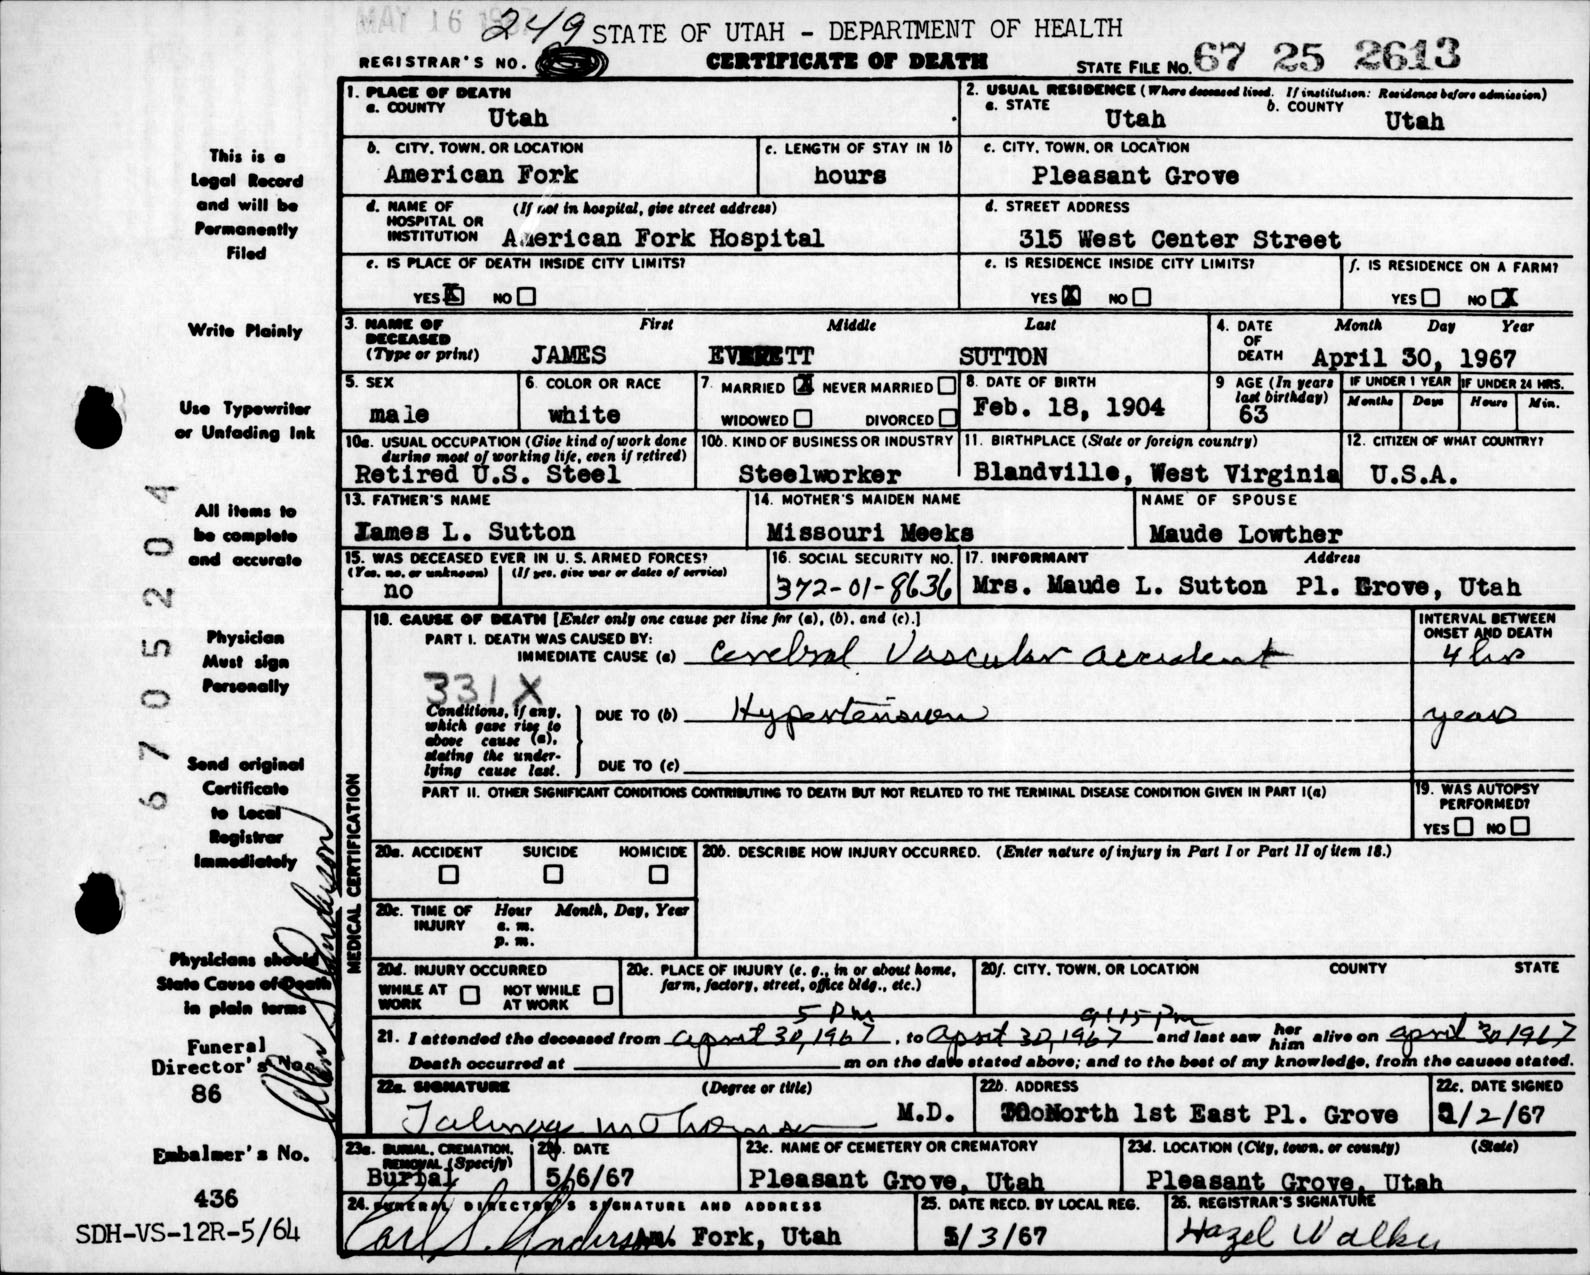 MAY 16
249 STATE OF UTAH - DEPARTMENT OF HEALTH
REGISTRAR'S NO. CERTIFICATE OF DEATH STATE FILE NO. 67 25 2613
1. PLACE OF DEATH
a. COUNTY Utah
2. USUAL RESIDENCE (Where deceased lived. If institution: Residence before admission)
a. STATE Utah b. COUNTY Utah
b. CITY, TOWN, OR LOCATION American Fork
c. LENGTH OF STAY IN 1b hours
c. CITY, TOWN, OR LOCATION Pleasant Grove
d. NAME OF HOSPITAL OR INSTITUTION (If not in hospital, give street address) American Fork Hospital
d. STREET ADDRESS 315 West Center Street
e. IS PLACE OF DEATH INSIDE CITY LIMITS? YES X NO
e. IS RESIDENCE INSIDE CITY LIMITS? YES X NO
f. IS RESIDENCE ON A FARM? YES NO X
3. NAME OF DECEASED (Type or print) First Middle Last
JAMES EVERETT SUTTON
4. DATE OF DEATH Month Day Year
April 30, 1967
5. SEX male
6. COLOR OR RACE white
7. MARRIED X NEVER MARRIED
WIDOWED DIVORCED
8. DATE OF BIRTH Feb. 18, 1904
9 AGE (In years last birthday) 63
IF UNDER 1 YEAR Months Days
IF UNDER 24 HRS. Hours Min.
10a. USUAL OCCUPATION (Give kind of work done during most of working life, even if retired)
Retired U.S. Steel
10b. KIND OF BUSINESS OR INDUSTRY Steelworker
11. BIRTHPLACE (State or foreign country) Blandville, West Virginia
12. CITIZEN OF WHAT COUNTRY? U.S.A.
13. FATHER'S NAME James L. Sutton
14. MOTHER'S MAIDEN NAME Missouri Meeks
NAME OF SPOUSE Maude Lowther
15. WAS DECEASED EVER IN U. S. ARMED FORCES?
(Yes, no, or unknown) (If yes, give war or dates of service)
no
16. SOCIAL SECURITY NO. 372-01-8636
17. INFORMANT Address
Mrs. Maude L. Sutton Pl. Grove, Utah
MEDICAL CERTIFICATION
18. CAUSE OF DEATH [Enter only one cause per line for (a), (b), and (c).]
PART I. DEATH WAS CAUSED BY:
IMMEDIATE CAUSE (a) Cerebral Vascular accident
INTERVAL BETWEEN ONSET AND DEATH
4 hrs
331X
Conditions, if any, which gave rise to above cause (a), stating the underlying cause last.
DUE TO (b) Hypertension years
DUE TO (c)
PART II. OTHER SIGNIFICANT CONDITIONS CONTRIBUTING TO DEATH BUT NOT RELATED TO THE TERMINAL DISEASE CONDITION GIVEN IN PART I(a)
19. WAS AUTOPSY PERFORMED?
YES NO
20a. ACCIDENT SUICIDE HOMICIDE
20b. DESCRIBE HOW INJURY OCCURRED. (Enter nature of injury in Part I or Part II of item 18.)
20c. TIME OF INJURY Hour Month, Day, Year
a. m.
p. m.
20d. INJURY OCCURRED
WHILE AT WORK NOT WHILE AT WORK
20e. PLACE OF INJURY (e. g., in or about home, farm, factory, street, office bldg., etc.)
20f. CITY, TOWN, OR LOCATION COUNTY STATE
5 Pm 9:15 Pm
21. I attended the deceased from april 30, 1967, to april 30, 1967 and last saw her him alive on april 30 1967
Death occurred at m on the date stated above; and to the best of my knowledge, from the causes stated.
22a. SIGNATURE (Degree or title)
M.D.
22b. ADDRESS North 1st East Pl. Grove
22c. DATE SIGNED 5/2/67
23a. BURIAL, CREMATION, REMOVAL (Specify) Burial
23b. DATE 5/6/67
23c. NAME OF CEMETERY OR CREMATORY Pleasant Grove, Utah
23d. LOCATION (City, town, or county) (State)
Pleasant Grove, Utah
24. FUNERAL DIRECTOR'S SIGNATURE AND ADDRESS
Carl S. Anderson Am. Fork, Utah
25. DATE RECD. BY LOCAL REG. 5/3/67
26. REGISTRAR'S SIGNATURE
Hazel Walker
This is a
Legal Record
and will be
Permanently
Filed
Write Plainly
Use Typewriter
or Unfading Ink
All items to
be complete
and accurate
Physician
Must sign
Personally
Send original
Certificate
to Local
Registrar
Immediately
Physicians should
State Cause of Death
in plain terms
Funeral
Director's No.
86
Embalmer's No.
436
SDH-VS-12R-5/64
6705204